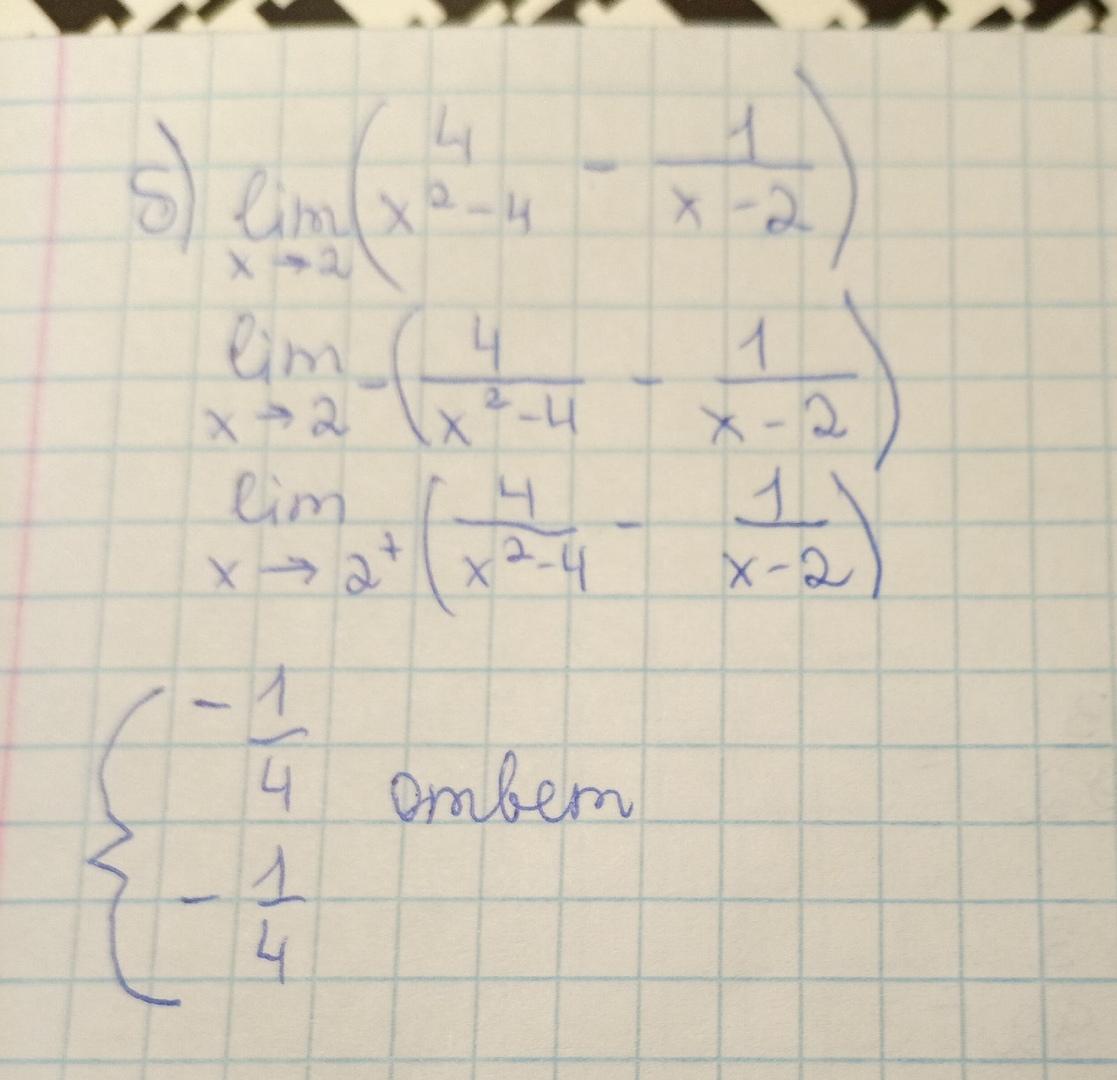 б) lim x→2 (4 / x²-4 - 1 / x-2)
lim x→2⁻ (4 / x²-4 - 1 / x-2)
lim x→2⁺ (4 / x²-4 - 1 / x-2)
{ - 1/4
ответ
- 1/4